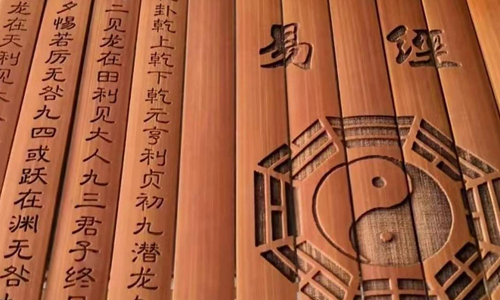 易經
卦乾上乾下乾元亨利贞初九潜龙
二见龙在田利见大人九三君子终日
夕惕若厉无咎九四或跃在渊无咎
龙在天利见大